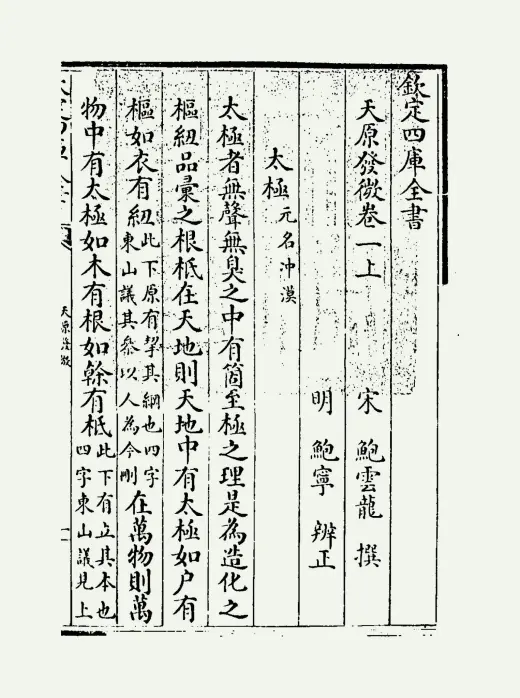 欽定四庫全書
天原發微卷一上
宋 鮑雲龍 撰
明 鮑寧 辨正
太極元名沖漠
太極者無聲無臭之中有箇至極之理是為造化之
樞紐品彙之根柢在天地則天地中有太極如户有
樞如衣有紐此下原有挈其綱也四字東山議其忝以人為今刪在萬物則萬
物中有太極如木有根如榦有柢此下有立其本也四字東山議見上
天原發微